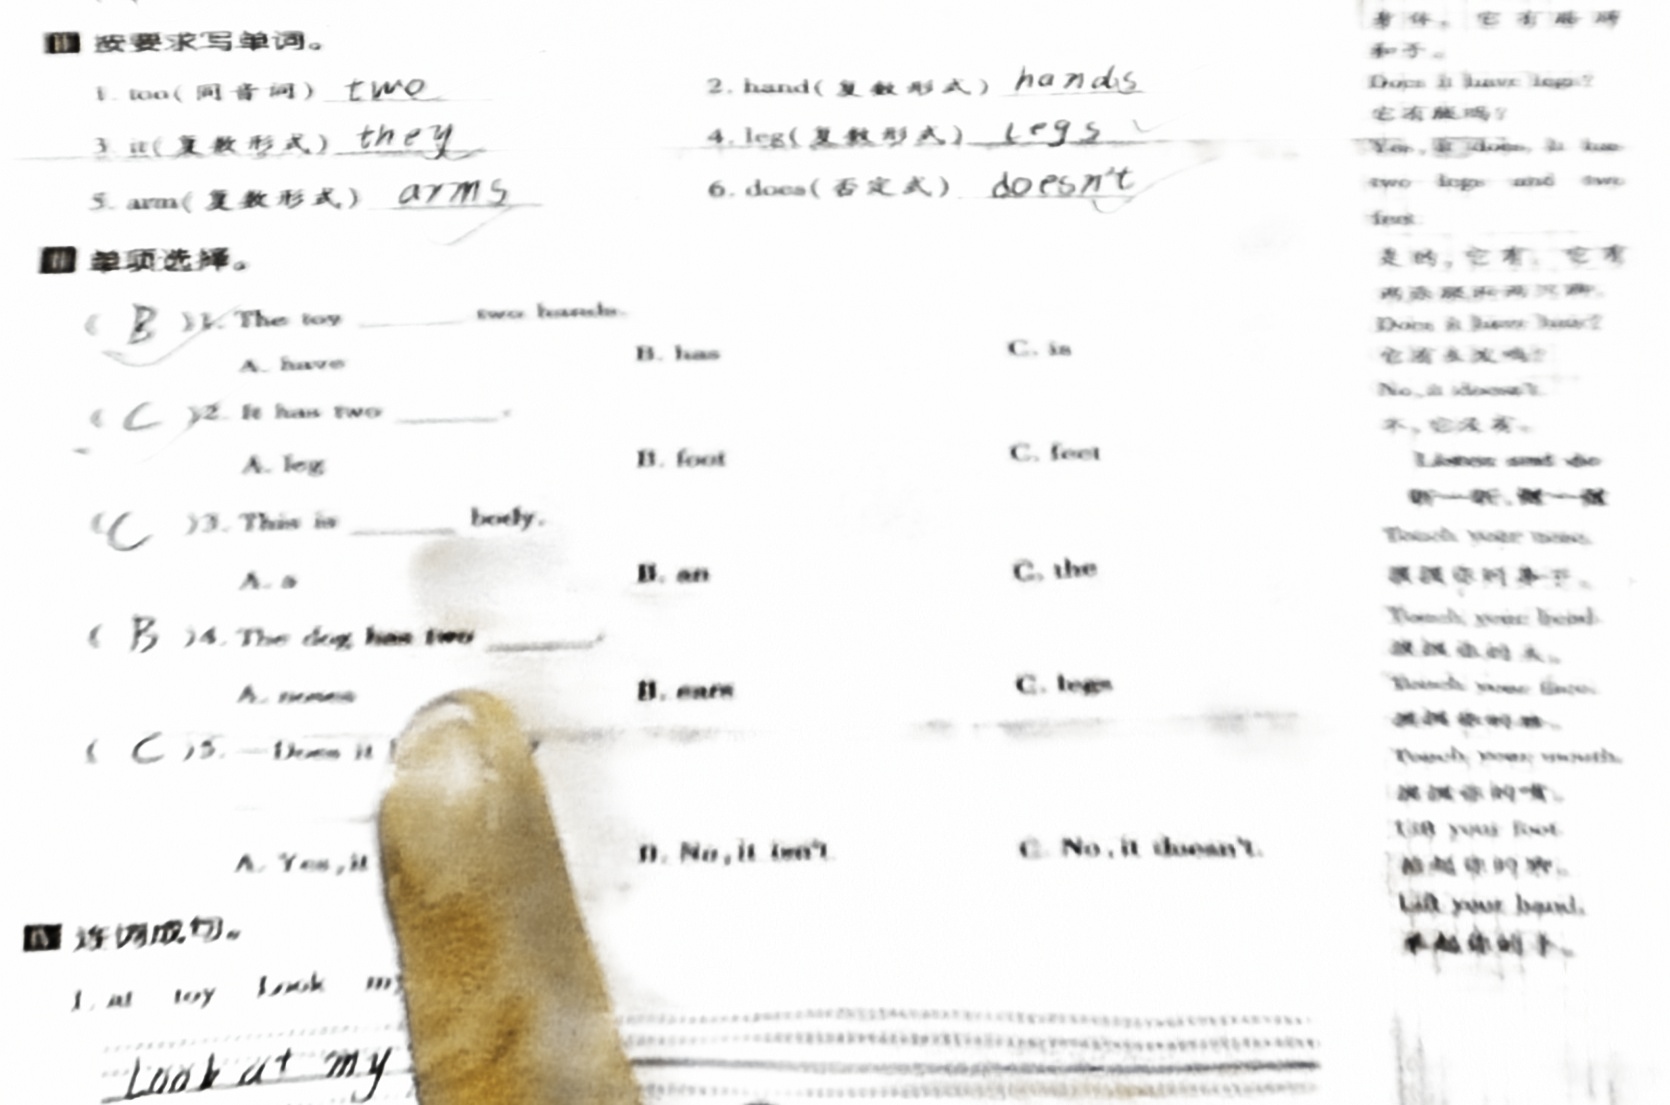 Ⅱ 按要求写单词。
1. too(同音词) two 2. hand(复数形式) hands
3. it(复数形式) they 4. leg(复数形式) legs
5. arm(复数形式) arms 6. does(否定式) doesn't
Ⅲ 单项选择。
( B )1. The toy ______ two hands.
A. have B. has C. is
( C )2. It has two ______.
A. leg B. foot C. feet
( C )3. This is ______ body.
A. a B. an C. the
( B )4. The dog has two ______.
A. noses B. ears C. legs
( C )5. —Does it
A. Yes, it B. No, it isn't. C. No, it doesn't.
Ⅳ 连词成句。
1. at toy Look my
Look at my
身体。它有胳膊
和手。
Does it have legs?
它有腿吗?
Yes, it does. It has
two legs and two
feet.
是的,它有。它有
两条腿和两只脚。
Does it have hair?
它有头发吗?
No, it doesn't.
不,它没有。
Listen and do
听一听,做一做
Touch your nose.
摸摸你的鼻子。
Touch your head.
摸摸你的头。
Touch your face.
摸摸你的脸。
Touch your mouth.
摸摸你的嘴。
Lift your foot.
抬起你的脚。
Lift your hand.
举起你的手。